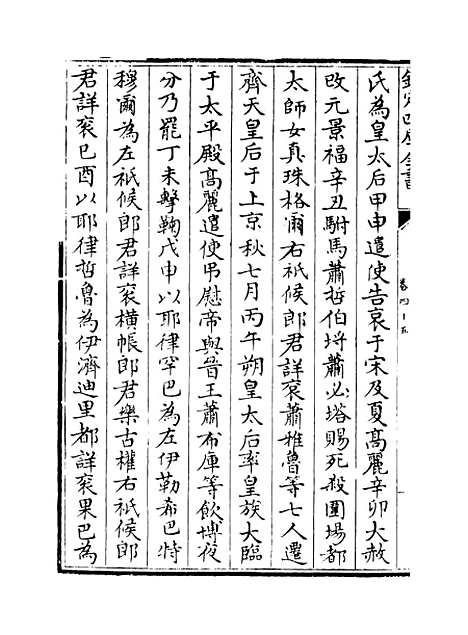 欽定四庫全書
卷四十五
氏為皇太后甲申遣使告哀于宋及夏髙麗辛卯大赦
改元景福辛丑駙馬蕭哲伯埒蕭必塔賜死殺圍場都
太師女真珠格爾右祇候郎君詳衮蕭雅魯等七人遷
齊天皇后于上京秋七月丙午朔皇太后率皇族大臨
于太平殿髙麗遣使弔慰帝與晉王蕭布庫等飲博夜
分乃罷丁未擊鞠戊申以耶律罕巴為左伊勒希巴特
穆爾為左祇候郎君詳衮横帳郎君樂古權右祇候郎
君詳衮己酉以耶律哲魯為伊濟迪里都詳衮果巴為